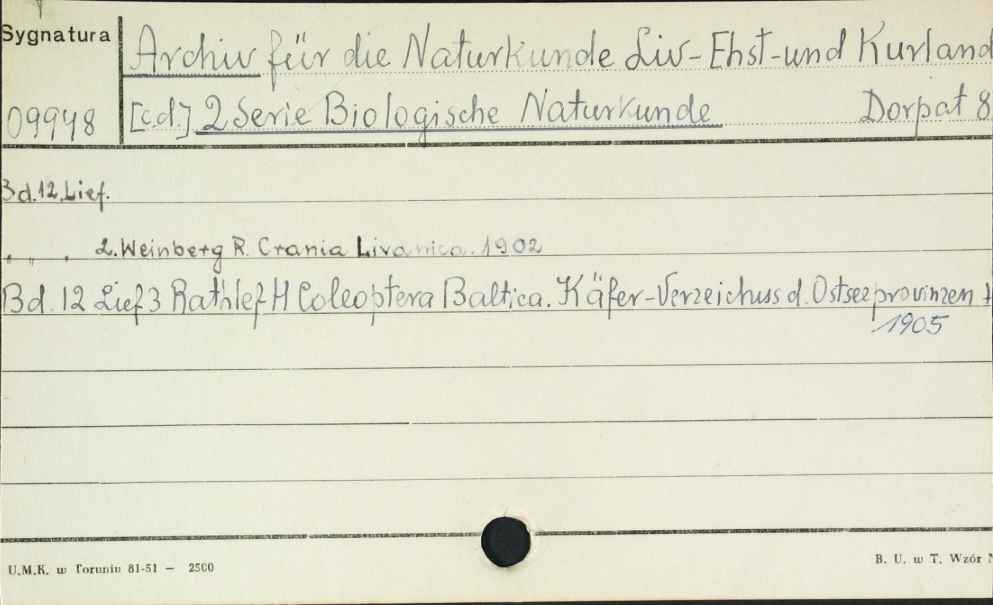 Sygnatura
Archiv für die Naturkunde Liv-Ehst-und Kurland
09948 [c.d.] 2 Serie Biologische Naturkunde Dorpat 8
Bd.12.Lief.
" " " 2. Weinberg R. Crania Livonica. 1902
Bd. 12 Lief 3 Rathlef H Coleoptera Baltica. Käfer-Verzeichuss d. Ostseeprovinzen
1905
U.M.K. w Toruniu 81-51 — 2500
B. U. w T. Wzór